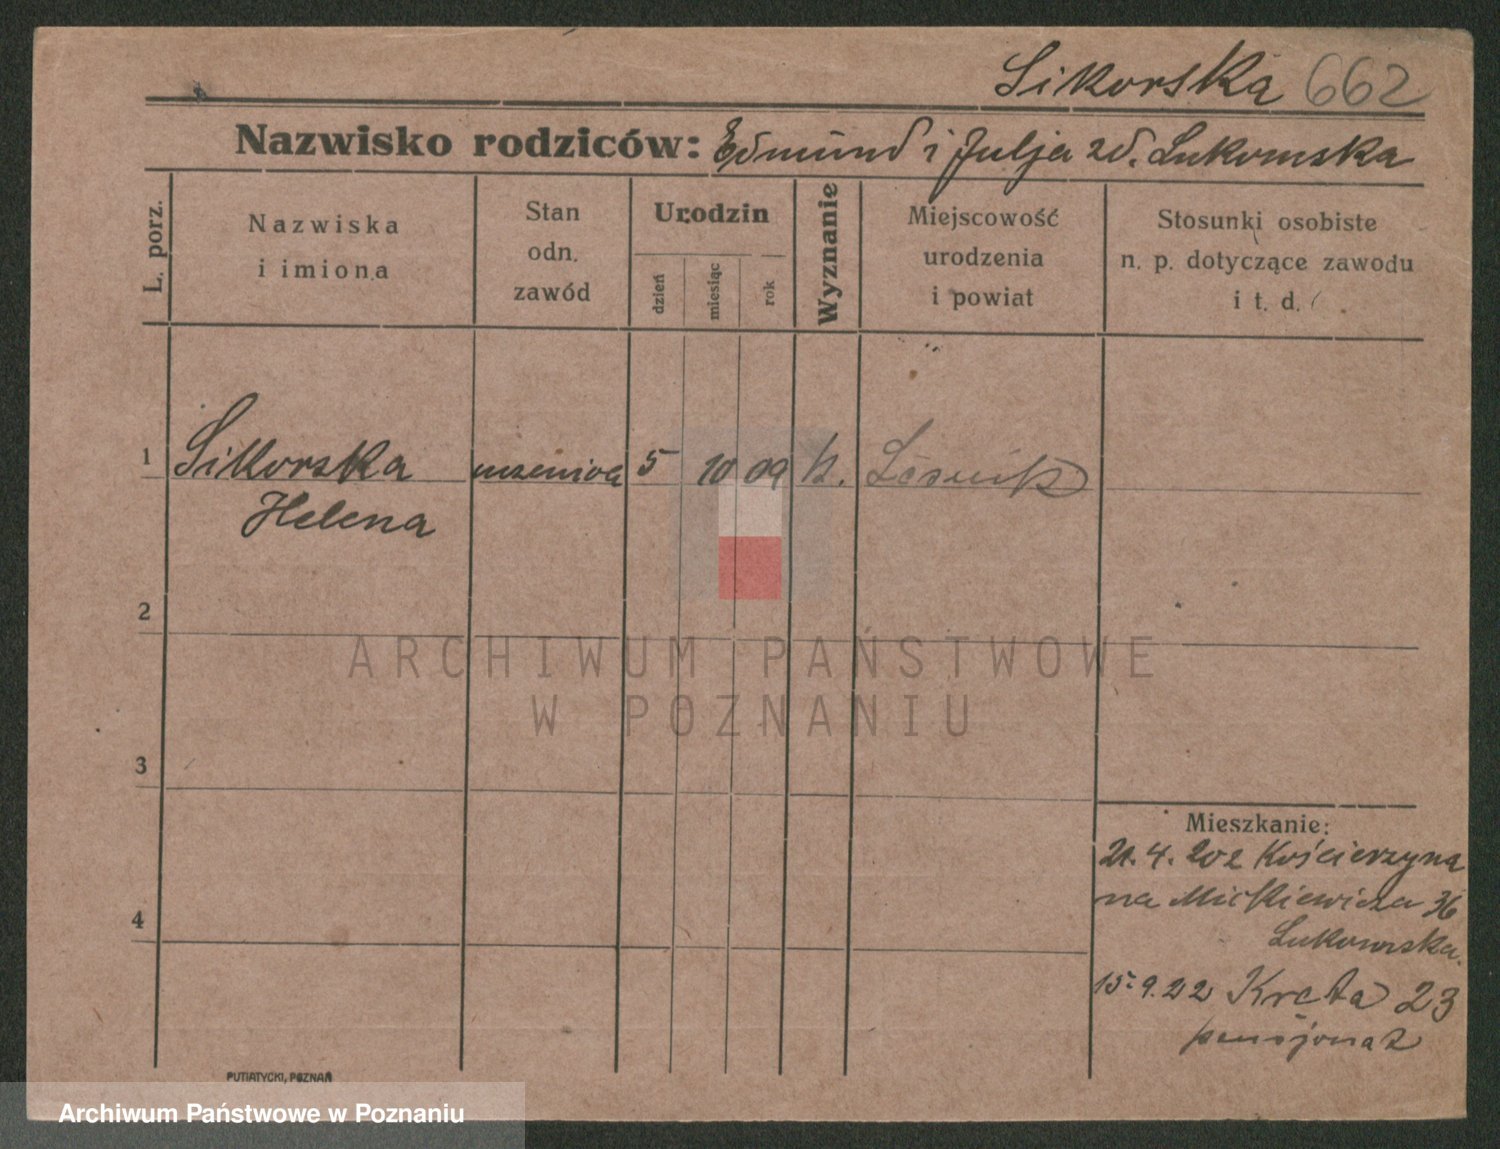 Sikorska 662
Nazwisko rodziców: Edmund i Julja zd. Lukomska
L. porz.
Nazwiska
i imiona
Stan
odn.
zawód
Urodzin
dzień
miesiąc
rok
Wyznanie
Miejscowość
urodzenia
i powiat
Stosunki osobiste
n. p. dotyczące zawodu
i t. d.
1 Sikorska uczenica 5 10 09 k.
Helena
2
3
4
Mieszkanie:
21. 4. Kościerzyna
na Mickiewicza 36
Lukomska.
15. 9. 22 Kręta 23
pensjonat
PUTIATYCKI, POZNAŃ
ARCHIWUM PAŃSTWOWE
W POZNANIU
Archiwum Państwowe w Poznaniu